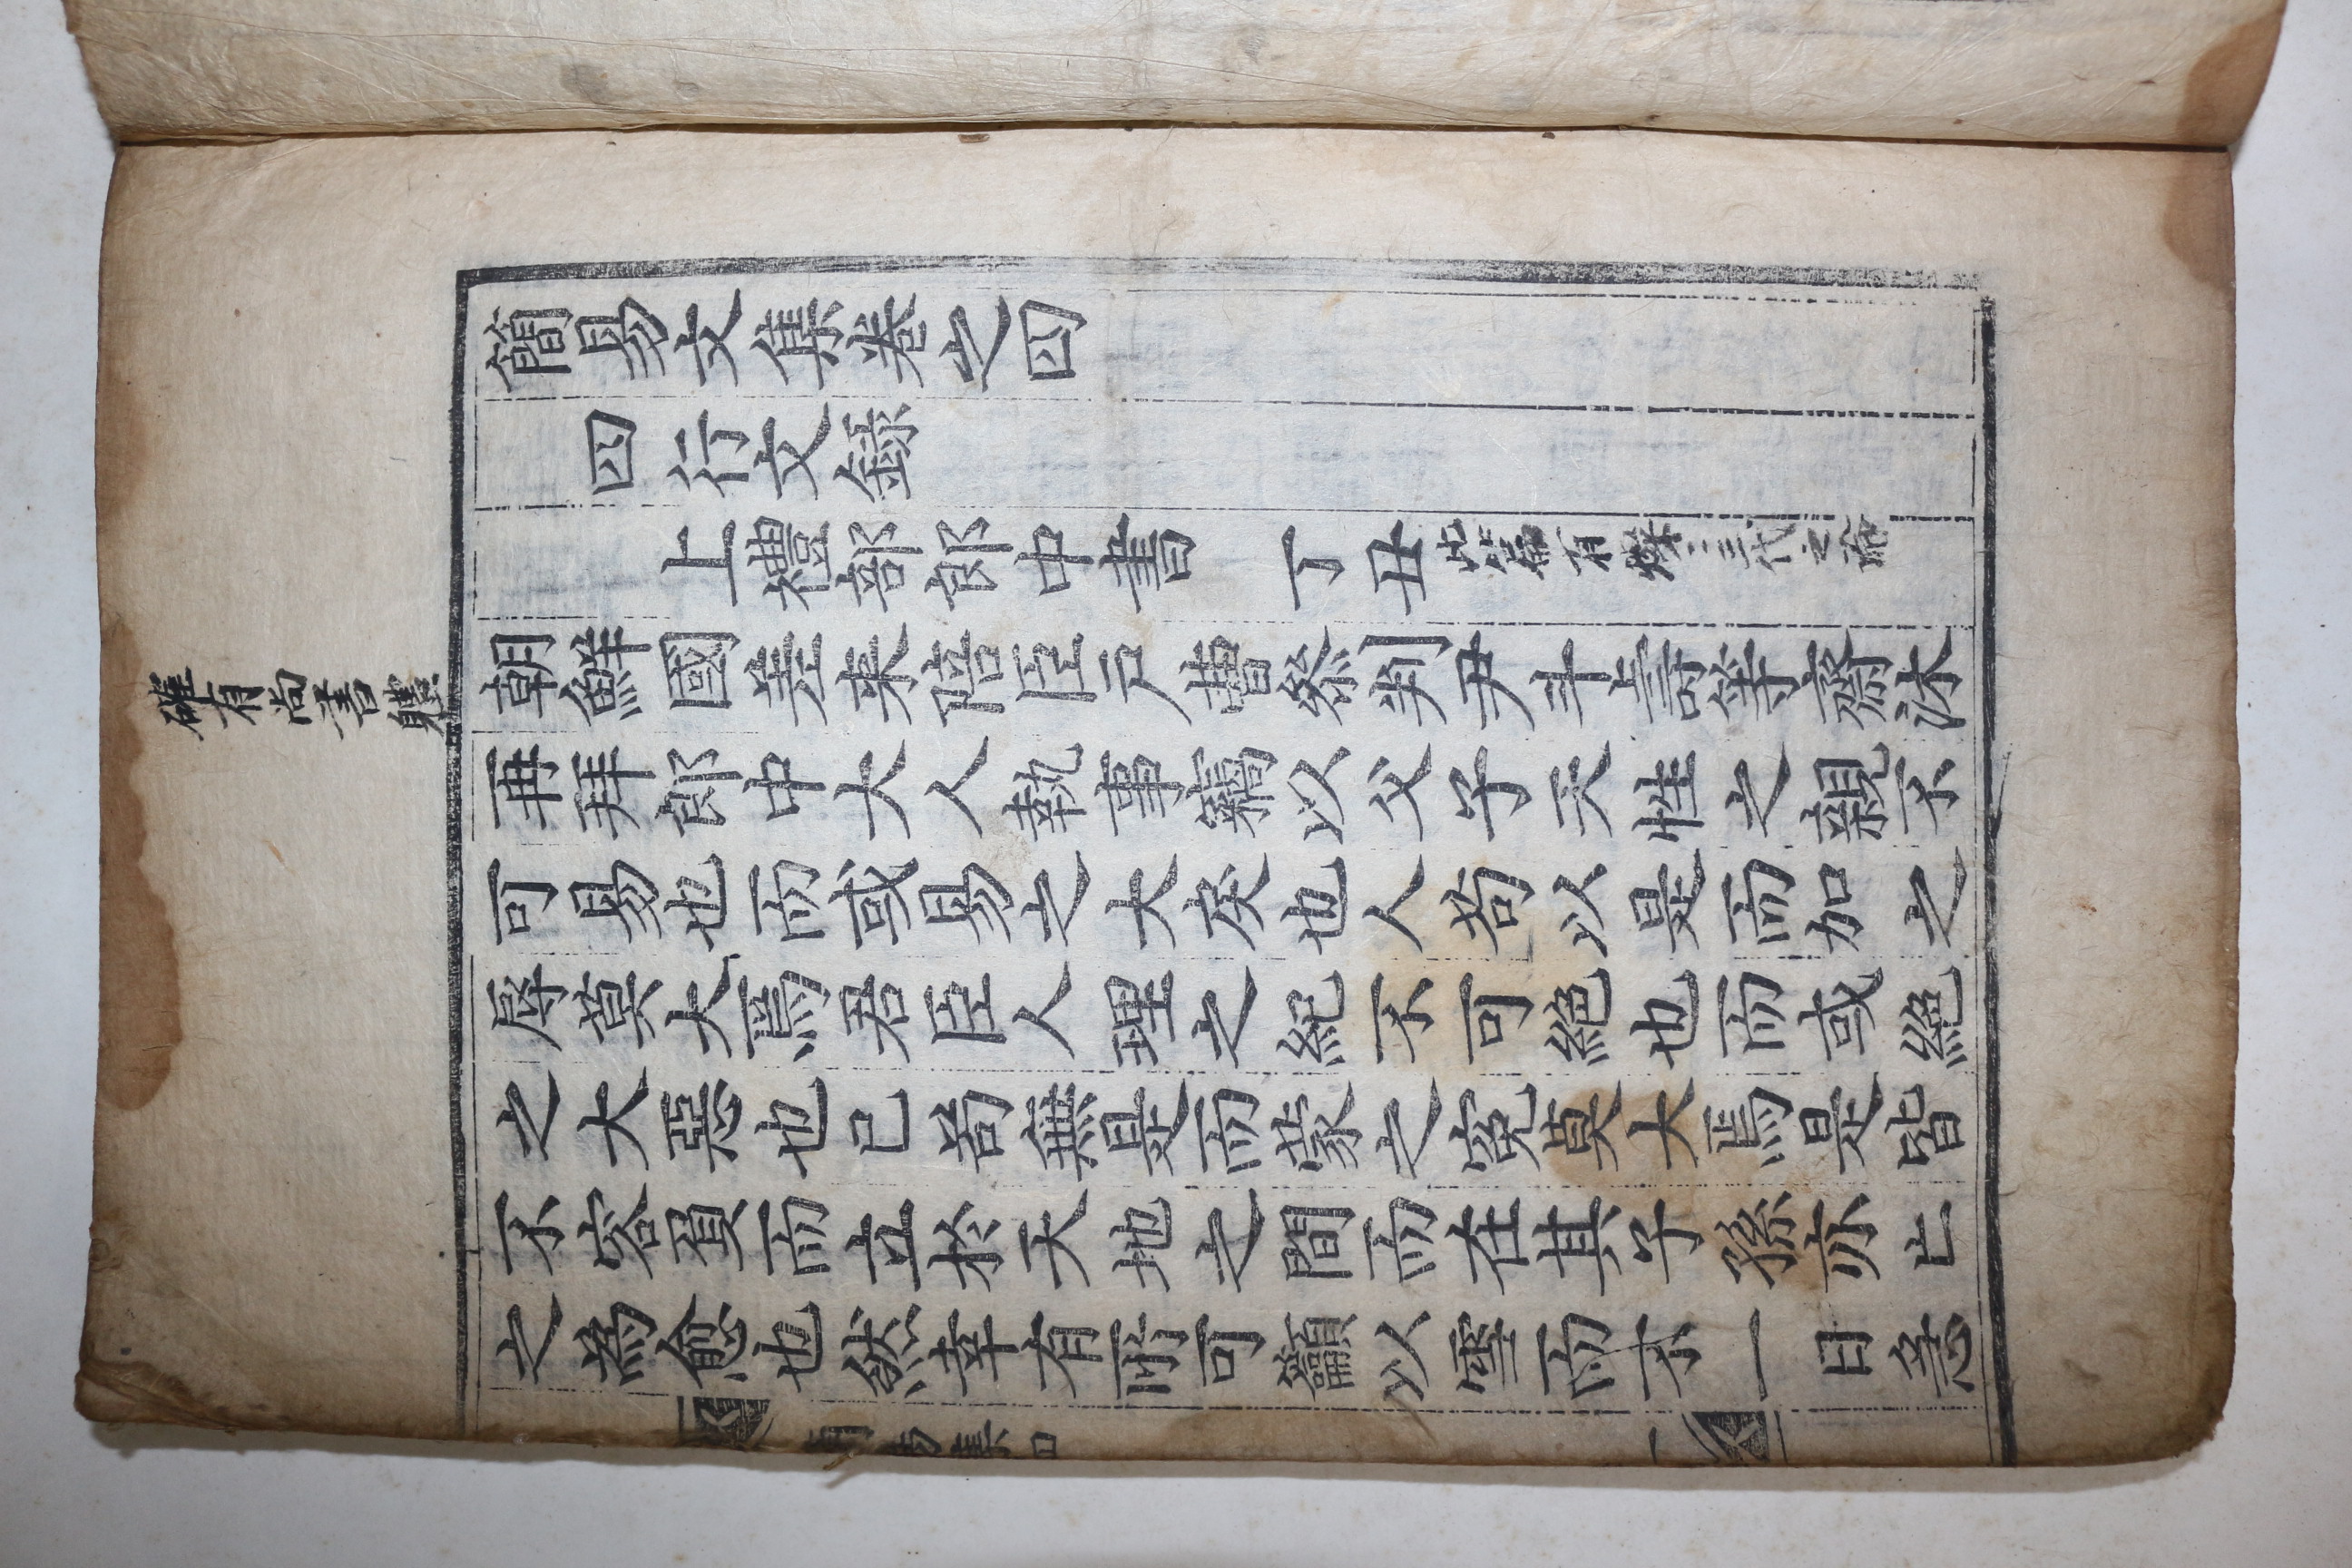 簡易文集卷之四
四行文錄
上禮部郎中書 丁丑 此篇有三代之
朝鮮國差來陪臣戶曹參判尹斗壽等齋沐
確有尙書體
再拜郎中大人執事竊以父子天性之親不
可易也而或易之大戾也人苟以是而加之
辱莫大焉君臣人理之紀不可絕也而或絕
之大惡也己苟無是而蒙之寃莫大焉是皆
不容負而立於天地之間而在其子孫亦亡
之爲愈也然幸有所可籲以雪而不一日忘